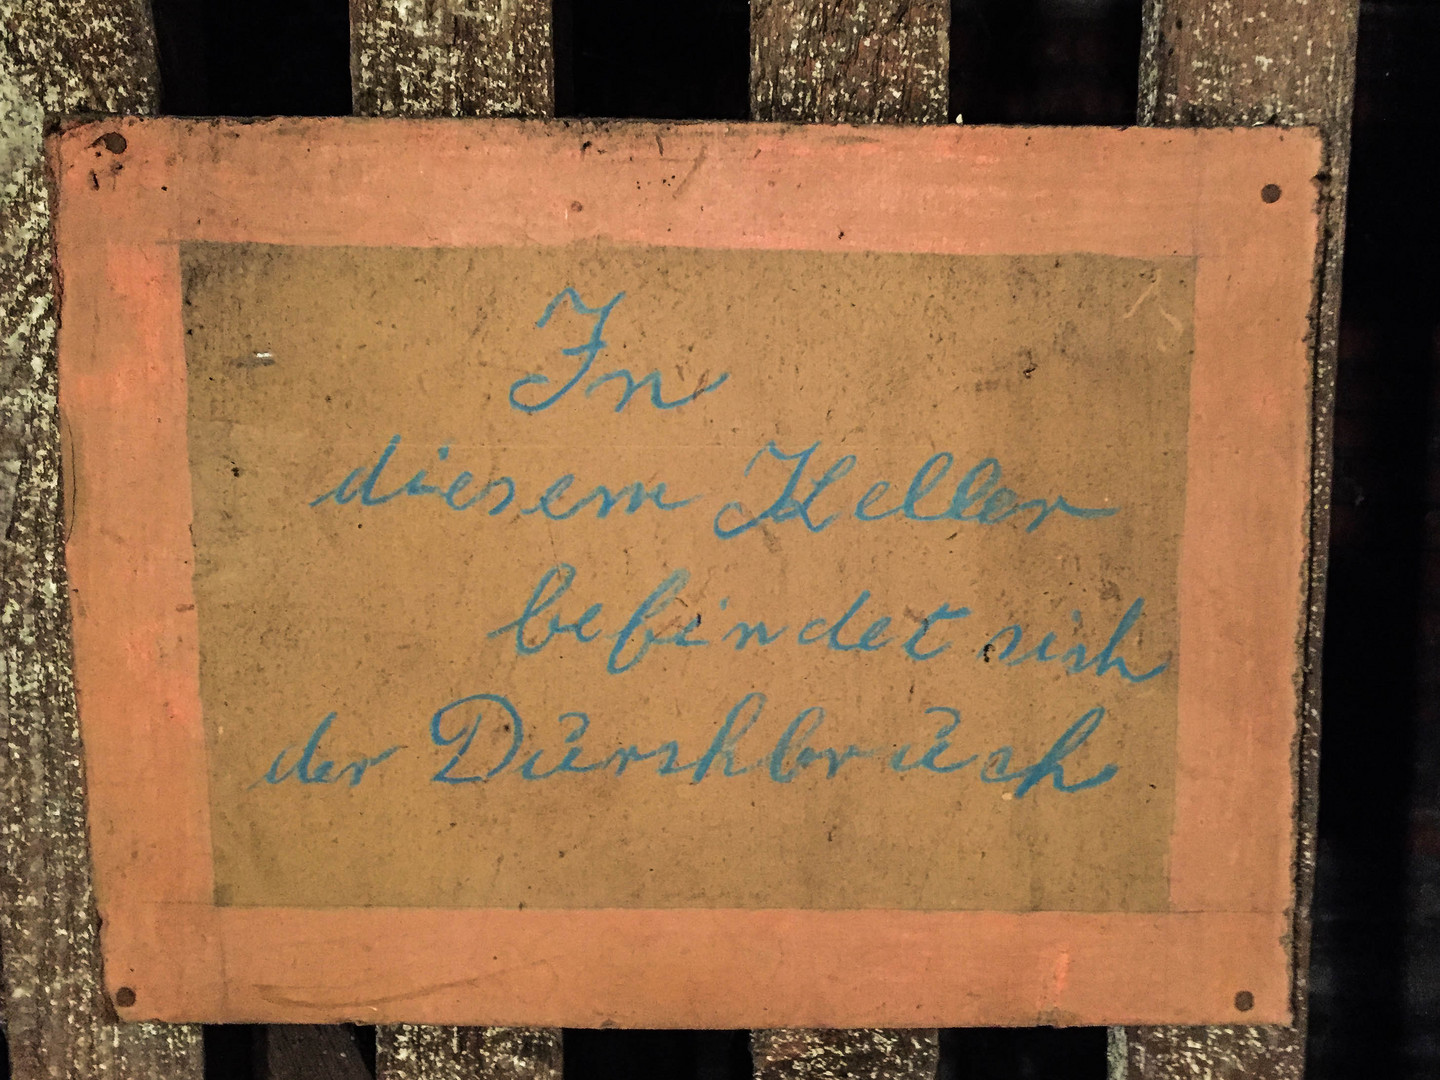 In
diesem Keller
befindet sich
der Durchbruch